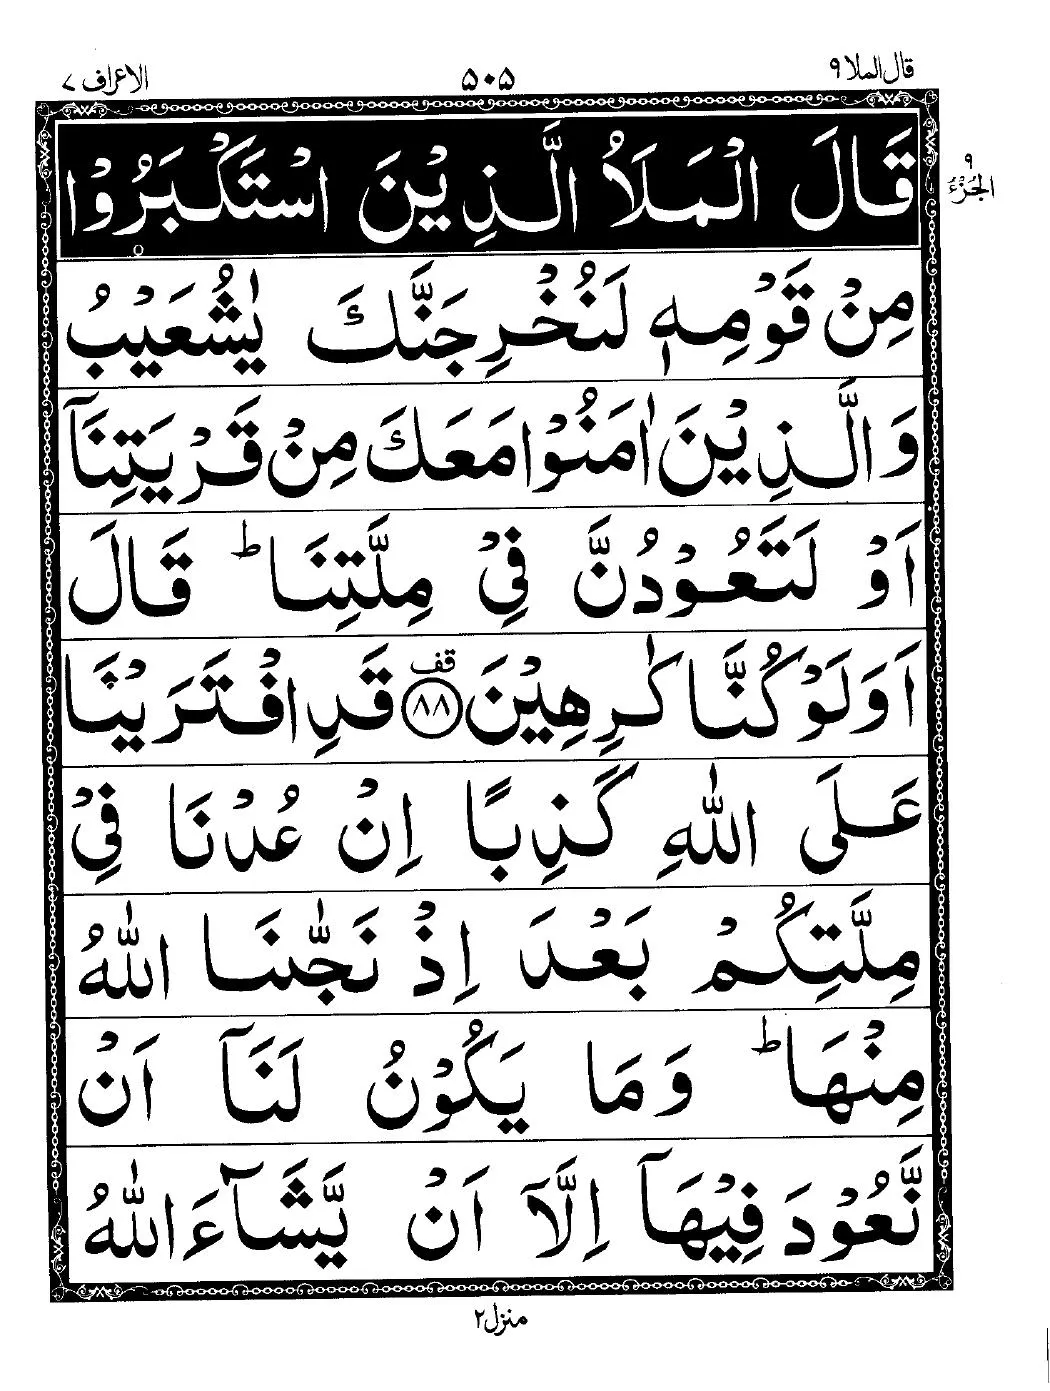 الاعراف ٧
٥٠٥
قال الملا ٩
٩
الجُزْءُ
قَالَ الْمَلَاُ الَّذِيْنَ اسْتَكْبَرُوْا
مِنْ قَوْمِهٖ لَنُخْرِجَنَّكَ يٰشُعَيْبُ
وَالَّذِيْنَ اٰمَنُوْا مَعَكَ مِنْ قَرْيَتِنَاۤ
اَوْ لَتَعُوْدُنَّ فِيْ مِلَّتِنَا ؕ قَالَ
اَوَلَوْ كُنَّا كٰرِهِيْنَ قف ﴿٨٨﴾ قَدِ افْتَرَيْنَا
عَلَى اللّٰهِ كَذِبًا اِنْ عُدْنَا فِيْ
مِلَّتِكُمْ بَعْدَ اِذْ نَجّٰىنَا اللّٰهُ
مِنْهَا ؕ وَمَا يَكُوْنُ لَنَاۤ اَنْ
نَّعُوْدَ فِيْهَاۤ اِلَّاۤ اَنْ يَّشَآءَ اللّٰهُ
منزل ٢